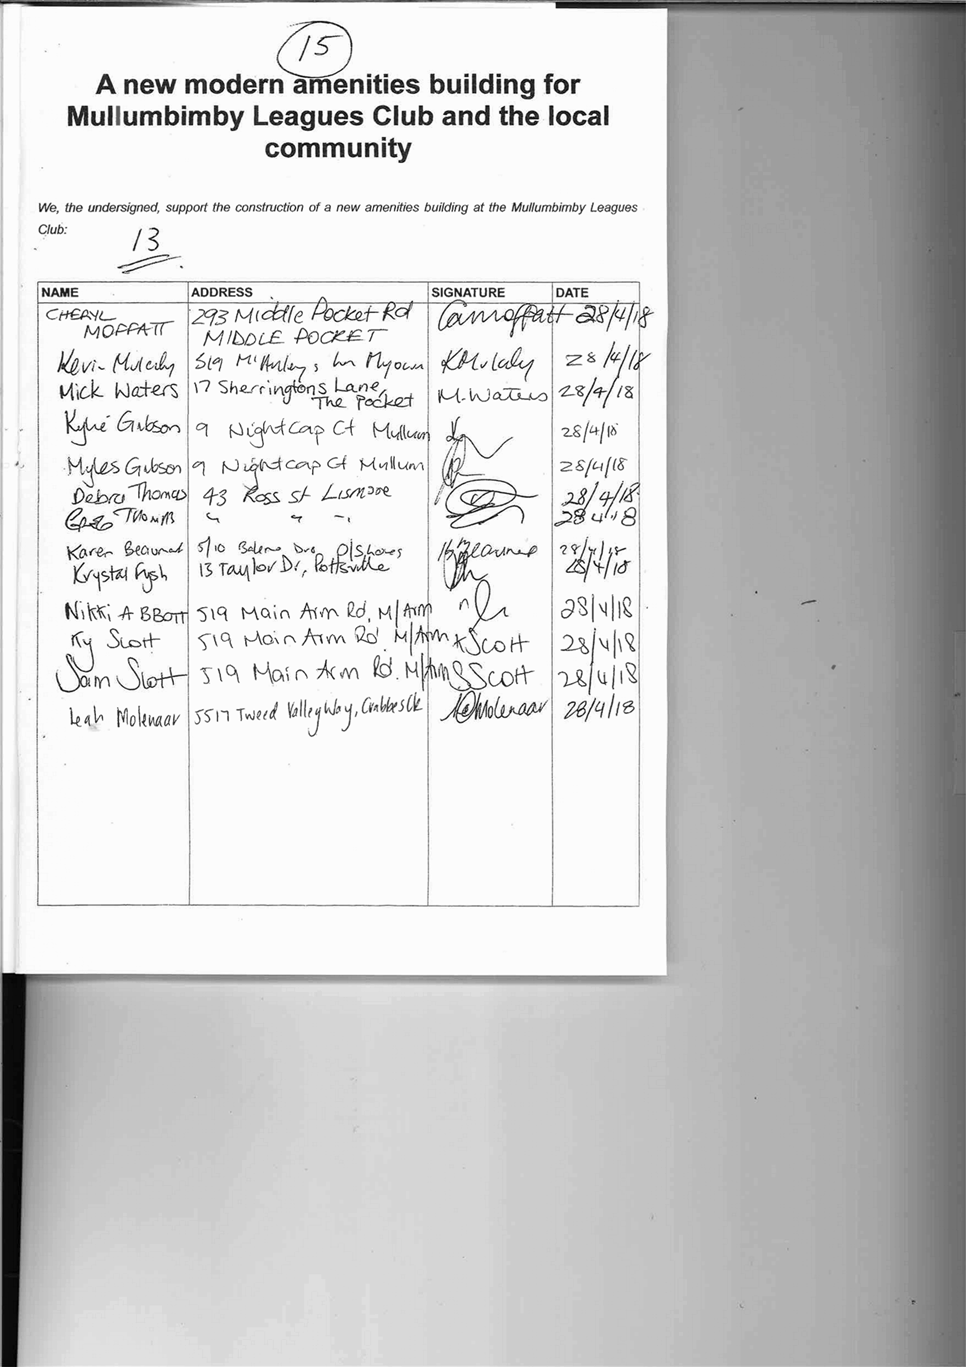 15
A new modern amenities building for
Mullumbimby Leagues Club and the local
community
We, the undersigned, support the construction of a new amenities building at the Mullumbimby Leagues
Club:
13
NAME ADDRESS SIGNATURE DATE
CHERYL MOFFATT 293 Middle Pocket Rd MIDDLE POCKET Camoffatt 28/4/18
Kevin 519 Myocum 28/4/18
Mick Waters 17 Sherringtons Lane, The Pocket M. Waters 28/4/18
Kylie Gibson 9 Nightcap Ct Mullum 28/4/18
Myles Gibson 9 Nightcap Ct Mullum 28/4/18
Debra Thomas 43 Ross St Lismore 28/4/18
Thomas " " " 28 4 18
Karen Beaumont 5/10 Dve O/Shores 28/4/18
Krystal Fysh 13 Taylor Dr, Pottsville 28/4/18
Nikki ABBott 519 Main Arm Rd, M/Arm 28/4/18
Ky Scott 519 Main Arm Rd. M/Arm KScott 28/4/18
Sam Scott 519 Main Arm Rd. M/Arm SScott 28/4/18
Leah Molenaar 5517 Tweed Valley Way, Crabbes Ck Molenaar 28/4/18